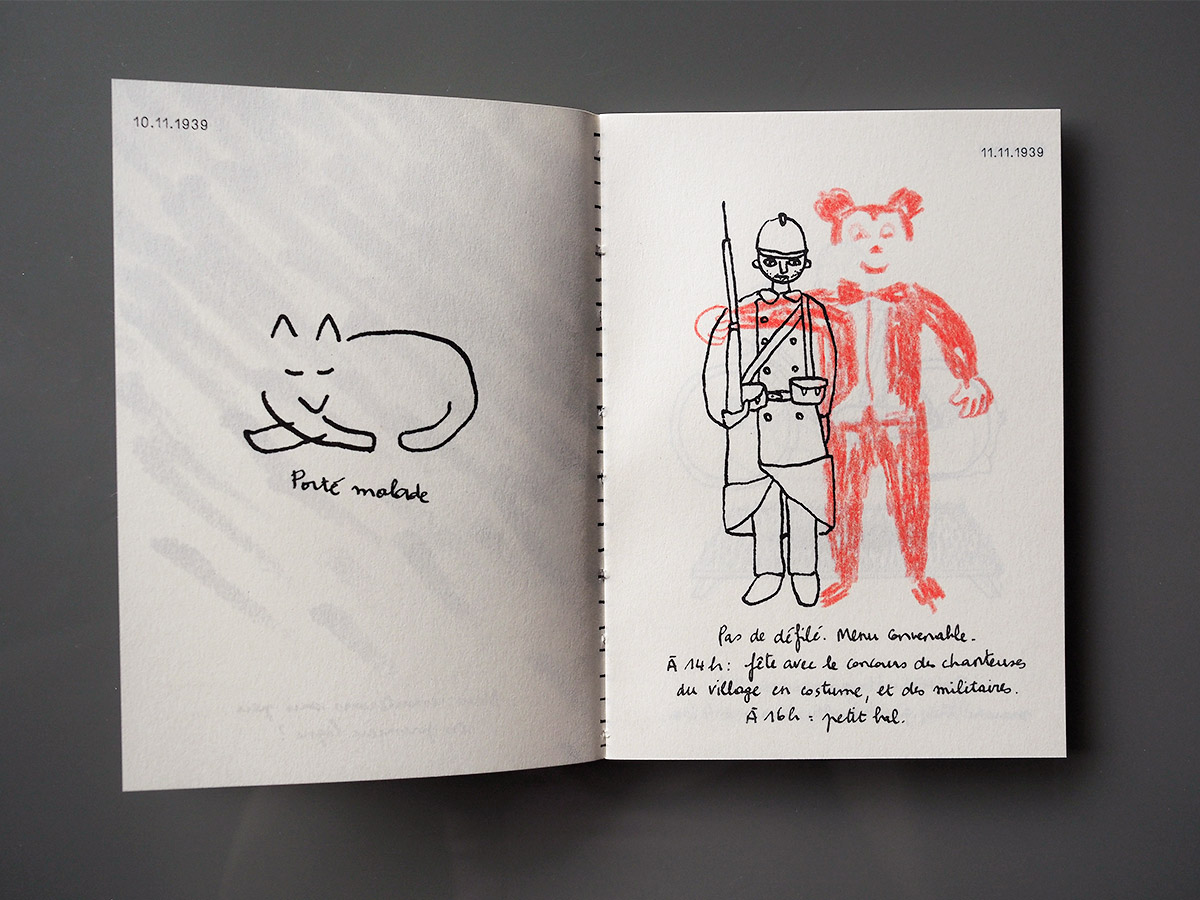 10.11.1939
Porté malade
11.11.1939
Pas de défilé. Menu convenable.
À 14h : fête avec le concours des chanteuses
du village en costume, et des militaires.
À 16h : petit bal.